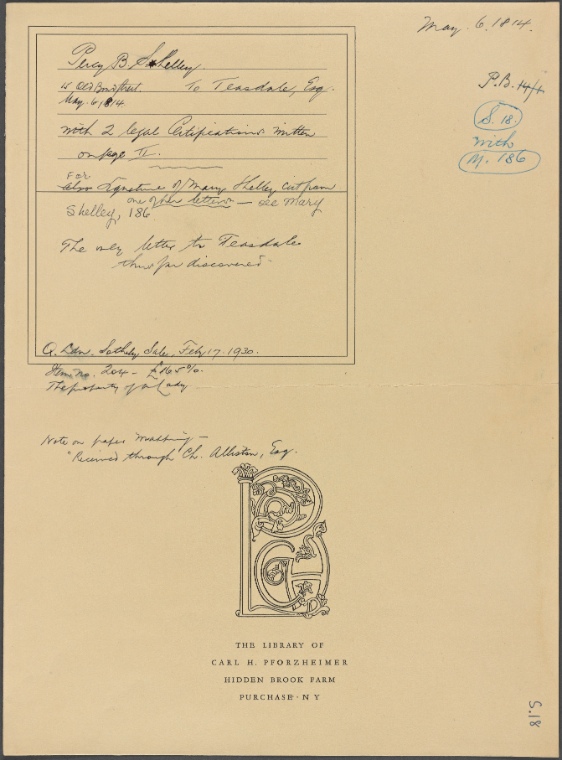 May. 6. 1814.
Percy B. Shelley
15 Old Bond Street. To Teasdale, Esq.
May. 6, 1814
P.B.
S. 18.
with
M. 186
with 2 legal Certifications written
on page II.
For
also Signature of Mary Shelley cut from
one of her letters — see Mary
Shelley, 186
The only letter to Teasdale
thus far discovered
Sotheby Sale, Feb 17. 1930.
Item no. 204 - £
The property of a Lady
Note on paper wrapping —
"Received through Ch. Alliston, Esq.
THE LIBRARY OF
CARL H. PFORZHEIMER
HIDDEN BROOK FARM
PURCHASE · N Y
S.18